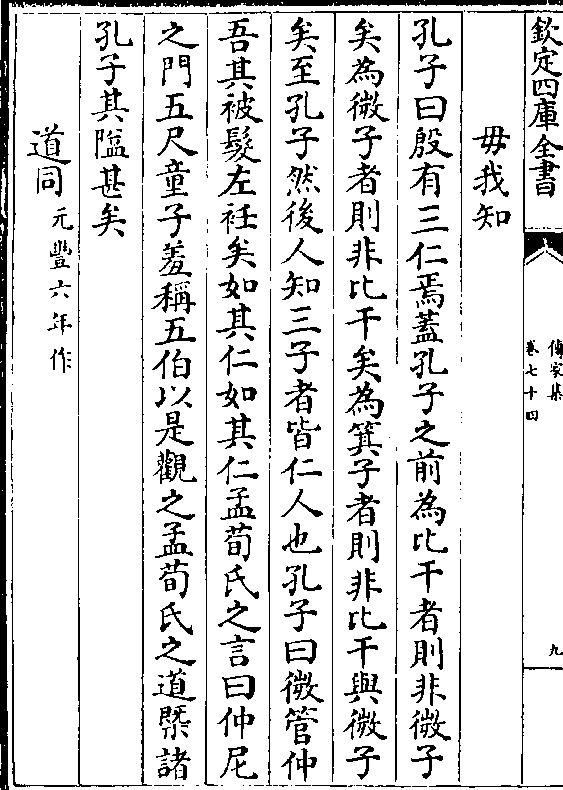 欽定四庫全書
傳家集
卷七十四
九
毋我知
孔子曰殷有三仁焉蓋孔子之前為比干者則非微子
矣為微子者則非比干矣為箕子者則非比干與微子
矣至孔子然後人知三子者皆仁人也孔子曰微管仲
吾其被髮左衽矣如其仁如其仁孟荀氏之言曰仲尼
之門五尺童子羞稱五伯以是觀之孟荀氏之道槩諸
孔子其隘甚矣
道同元豐六年作